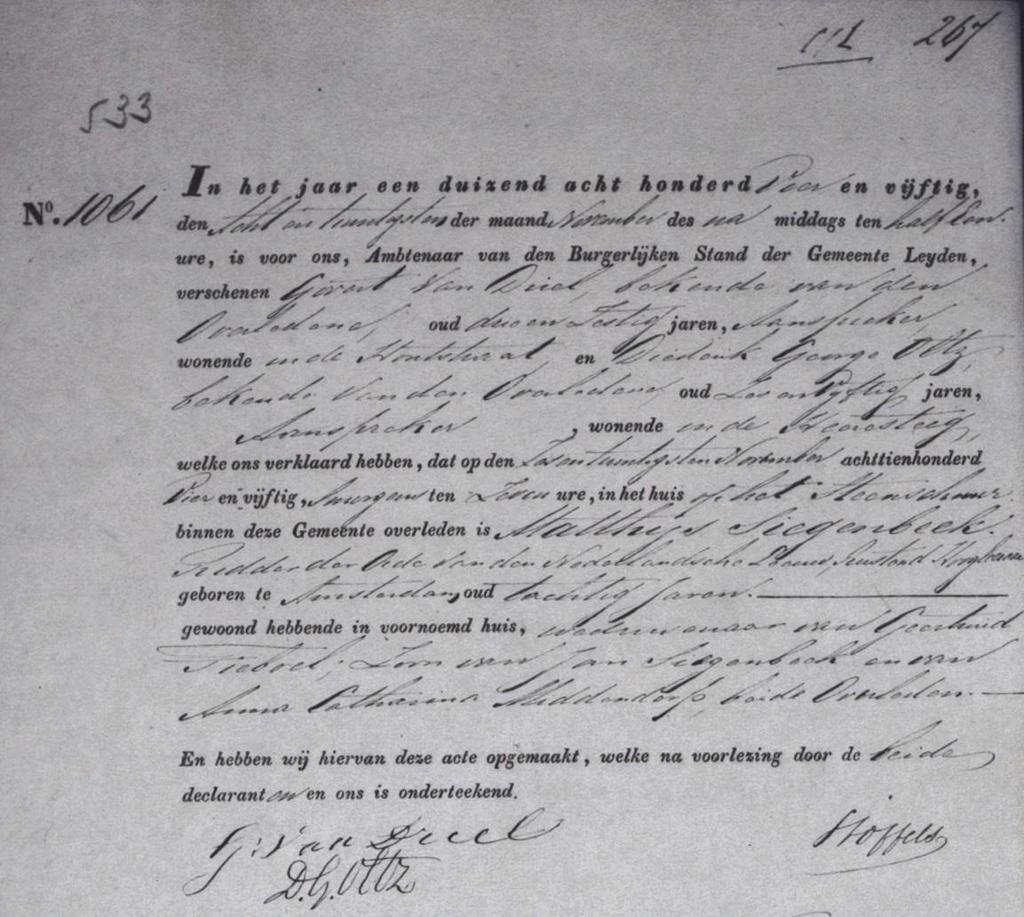 267
533
Nº. 1061
In het jaar een duizend acht honderd Vier en vijftig,
den Acht en twintigsten der maand November des na middags ten half een
ure, is voor ons, Ambtenaar van den Burgerlijken Stand der Gemeente Leyden,
verschenen Govert Van Driel, bekende van den
Overledene, oud drie en Zestig jaren, Aanspreker
wonende in de Houtstraat, en Diederik George Ottz,
bekende van den Overledene, oud Zes en Vyftig jaren,
Aanspreker, wonende in de
welke ons verklaard hebben, dat op den Zes en twintigsten November achttienhonderd
Vier en vijftig, 'smorgens ten Zeven ure, in het huis op het Steenschuur
binnen deze Gemeente overleden is Matthijs Siegenbeek.
Ridder der Orde van den Nederlandsche Leeuw, rustend Hoogleeraar
geboren te Amsterdam, oud tachtig Jaren.
gewoond hebbende in voornoemd huis, weduwenaar van Geertruid
Tieboel, Zoon van Jan Siegenbeek en van
Anna Catharina Middendorp, beide Overleden.
En hebben wij hiervan deze acte opgemaakt, welke na voorlezing door de beide
declaranten en ons is onderteekend.
G. Van Driel
Stoffels
D.G. Ottz